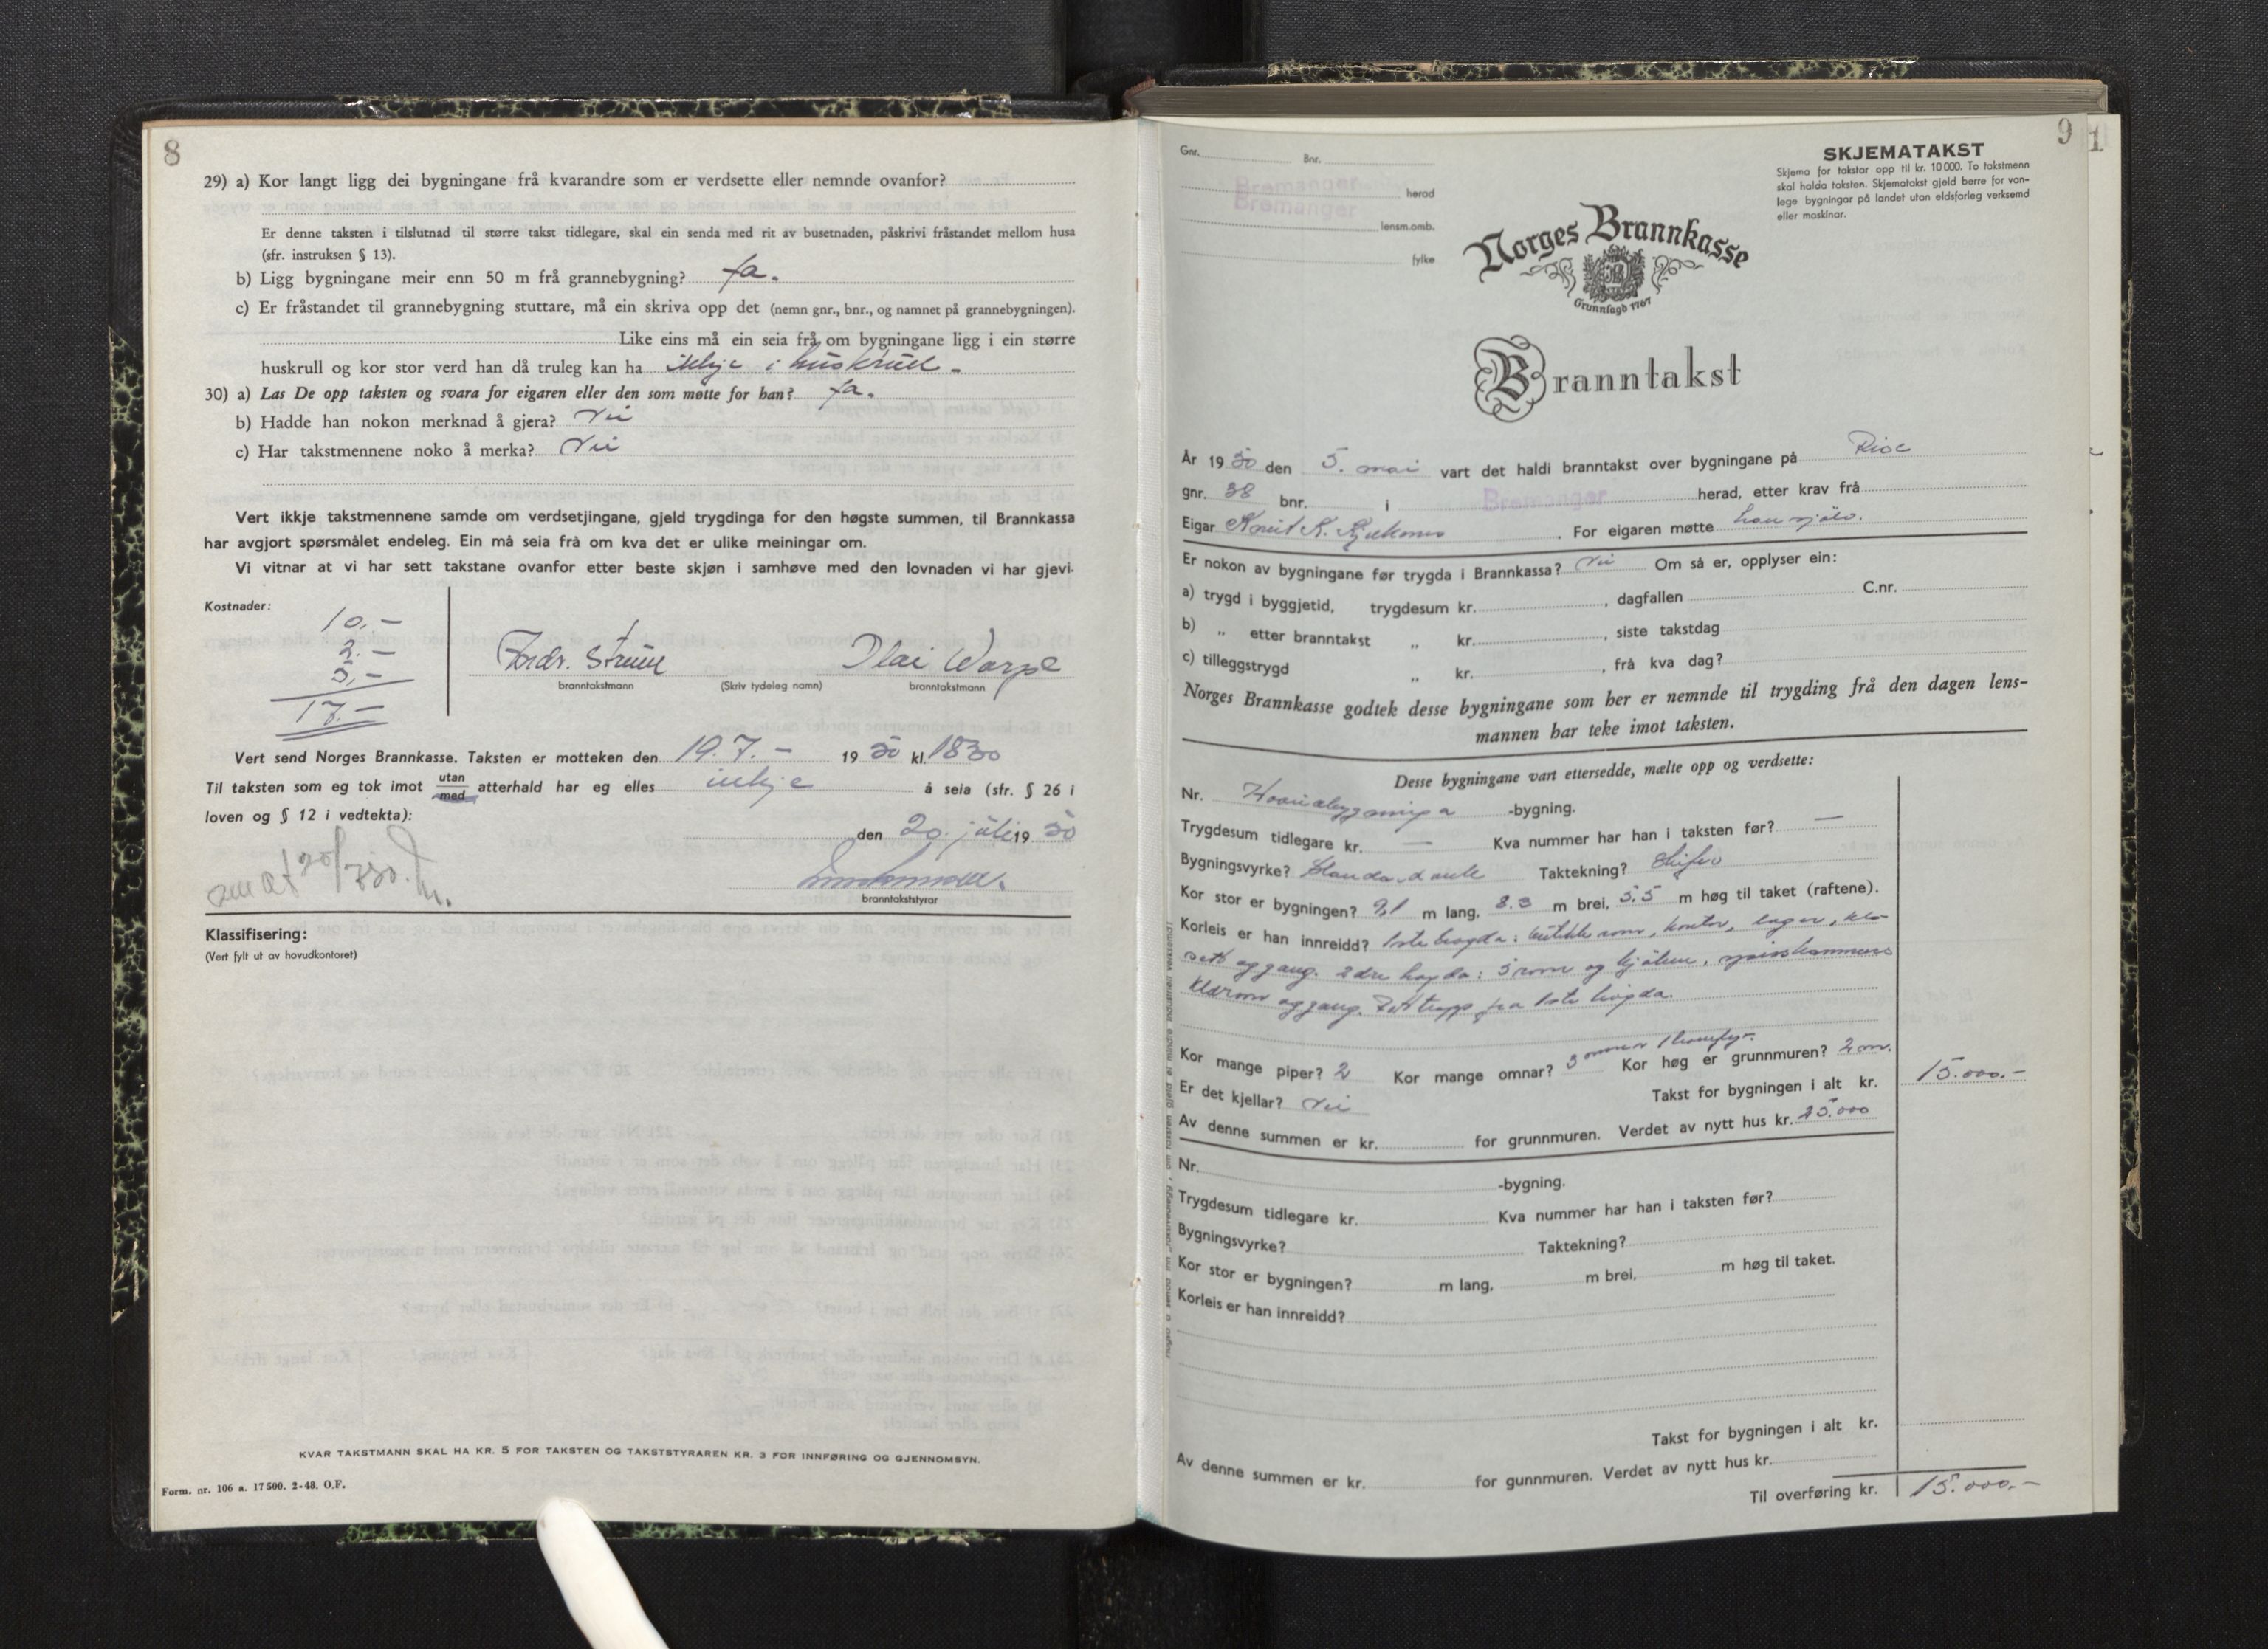 8
29) a) Kor langt ligg dei bygningane frå kvarandre som er verdsette eller nemnde ovanfor?
Er denne taksten i tilslutnad til større takst tidlegare, skal ein senda med rit av busetnaden, påskrivi fråstandet mellom husa
(sfr. instruksen § 13).
b) Ligg bygningane meir enn 50 m frå grannebygning? Ja.
c) Er fråstandet til grannebygning stuttare, må ein skriva opp det (nemn gnr., bnr., og namnet på grannebygningen).
Like eins må ein seia frå om bygningane ligg i ein større
huskrull og kor stor verd han då truleg kan ha ikkje i huskrull -
30) a) Las De opp taksten og svara for eigaren eller den som møtte for han? Ja.
b) Hadde han nokon merknad å gjera? Nei
c) Har takstmennene noko å merka? Nei
Vert ikkje takstmennene samde om verdsetjingane, gjeld trygdinga for den høgste summen, til Brannkassa
har avgjort spørsmålet endeleg. Ein må seia frå om kva det er ulike meiningar om.
Vi vitnar at vi har sett takstane ovanfor etter beste skjøn i samhøve med den lovnaden vi har gjevi.
Kostnader:
10.-
2.-
5,-
17.-
Fredr. Strum Olai Warpe
branntakstmann (Skriv tydeleg namn) branntakstmann
Vert send Norges Brannkasse. Taksten er motteken den 19.7.- 1950 kl. 1830
Til taksten som eg tok imot utan/med atterhald har eg elles inkje å seia (sfr. § 26 i
loven og § 12 i vedtekta):
den 20. juli 1950
20/7 50.
branntakststyrar
Klassifisering:
(Vert fylt ut av hovudkontoret)
KVAR TAKSTMANN SKAL HA KR. 5 FOR TAKSTEN OG TAKSTSTYRAREN KR. 3 FOR INNFØRING OG GJENNOMSYN.
Form. nr. 106 a. 17 500. 2-48. O.F.
9
1
Gnr. Bnr.
Bremanger
Bremanger
herad
lensm.omb.
fylke
SKJEMATAKST
Skjema for takstar opp til kr. 10 000. To takstmenn
skal halda taksten. Skjematakst gjeld berre for van-
lege bygningar på landet utan eldsfarleg verksemd
eller maskinar.
Norges Brannkasse
Grunnlagd 1767
Branntakst
År 1950 den 5. mai vart det haldi branntakst over bygningane på Rise
gnr. 38 bnr. i Bremanger herad, etter krav frå
Eigar Knut K. For eigaren møtte han sjølv.
Er nokon av bygningane før trygda i Brannkassa? Nei Om så er, opplyser ein:
a) trygd i byggjetid, trygdesum kr. , dagfallen C.nr.
b) „ etter branntakst „ kr. , siste takstdag
c) tilleggstrygd „ kr. , frå kva dag?
Norges Brannkasse godtek desse bygningane som her er nemnde til trygding frå den dagen lens-
mannen har teke imot taksten.
Desse bygningane vart ettersedde, mælte opp og verdsette:
Nr. Hovudbygninga -bygning.
Trygdesum tidlegare kr. — Kva nummer har han i taksten før? —
Bygningsvyrke? Taktekning? Skifer
Kor stor er bygningen? 9,1 m lang, 8.3 m brei, 5.5 m høg til taket (raftene).
Korleis er han innreidd? 1ste høgda: butikkrom, kontor, lager, klo-
sett og gang. 2dre høgda: 3 rom og kjøken, spiskammers
klærom og gang. Tett trapp fra 1ste høgda.
Kor mange piper? 2 Kor mange omnar? 3 omnar 1 komfyr. Kor høg er grunnmuren? 2 m.
Er det kjellar? Nei Takst for bygningen i alt kr. 15.000.-
Av denne summen er kr. for grunnmuren. Verdet av nytt hus kr. 25.000
Nr. -bygning.
Trygdesum tidlegare kr. Kva nummer har han i taksten før?
Bygningsvyrke? Taktekning?
Kor stor er bygningen? m lang, m brei, m høg til taket.
Korleis er han innreidd?
Takst for bygningen i alt kr.
Av denne summen er kr. for gunnmuren. Verdet av nytt hus kr.
Til overføring kr. 15.000.-